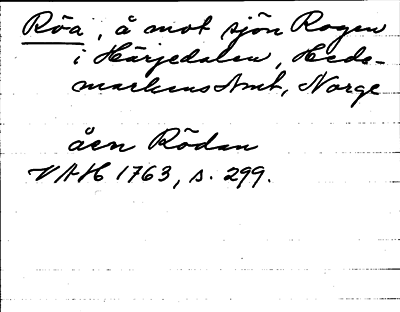 Röa, å mot sjön Rogen
i Härjedalen, Hede-
markens Amt, Norge
åen Rödan
VAH 1763, s. 299.